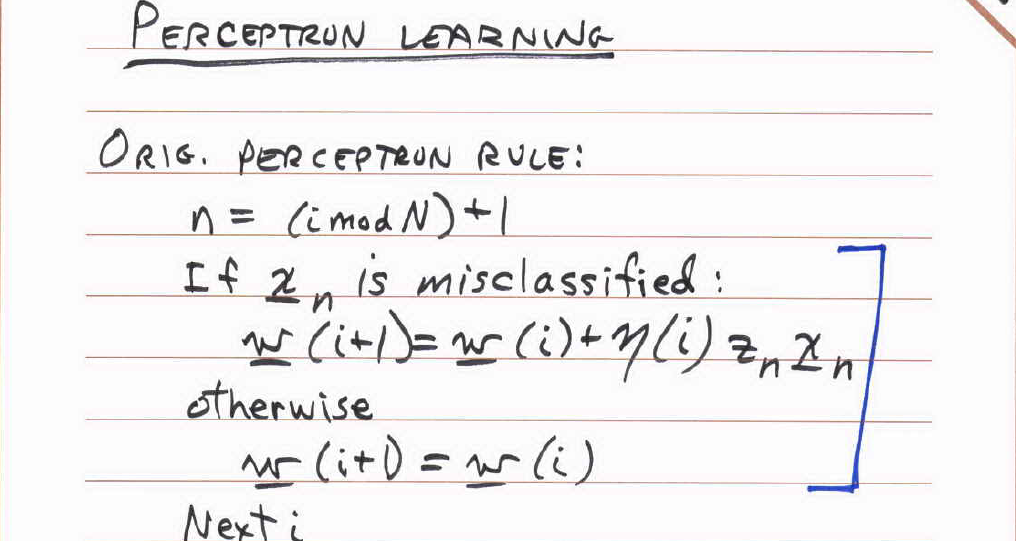 PERCEPTRON LEARNING
ORIG. PERCEPTRON RULE:
n = (i mod N) + 1
If x_n is misclassified:
w(i+1) = w(i) + η(i) z_n x_n
otherwise
w(i+1) = w(i)
Next i